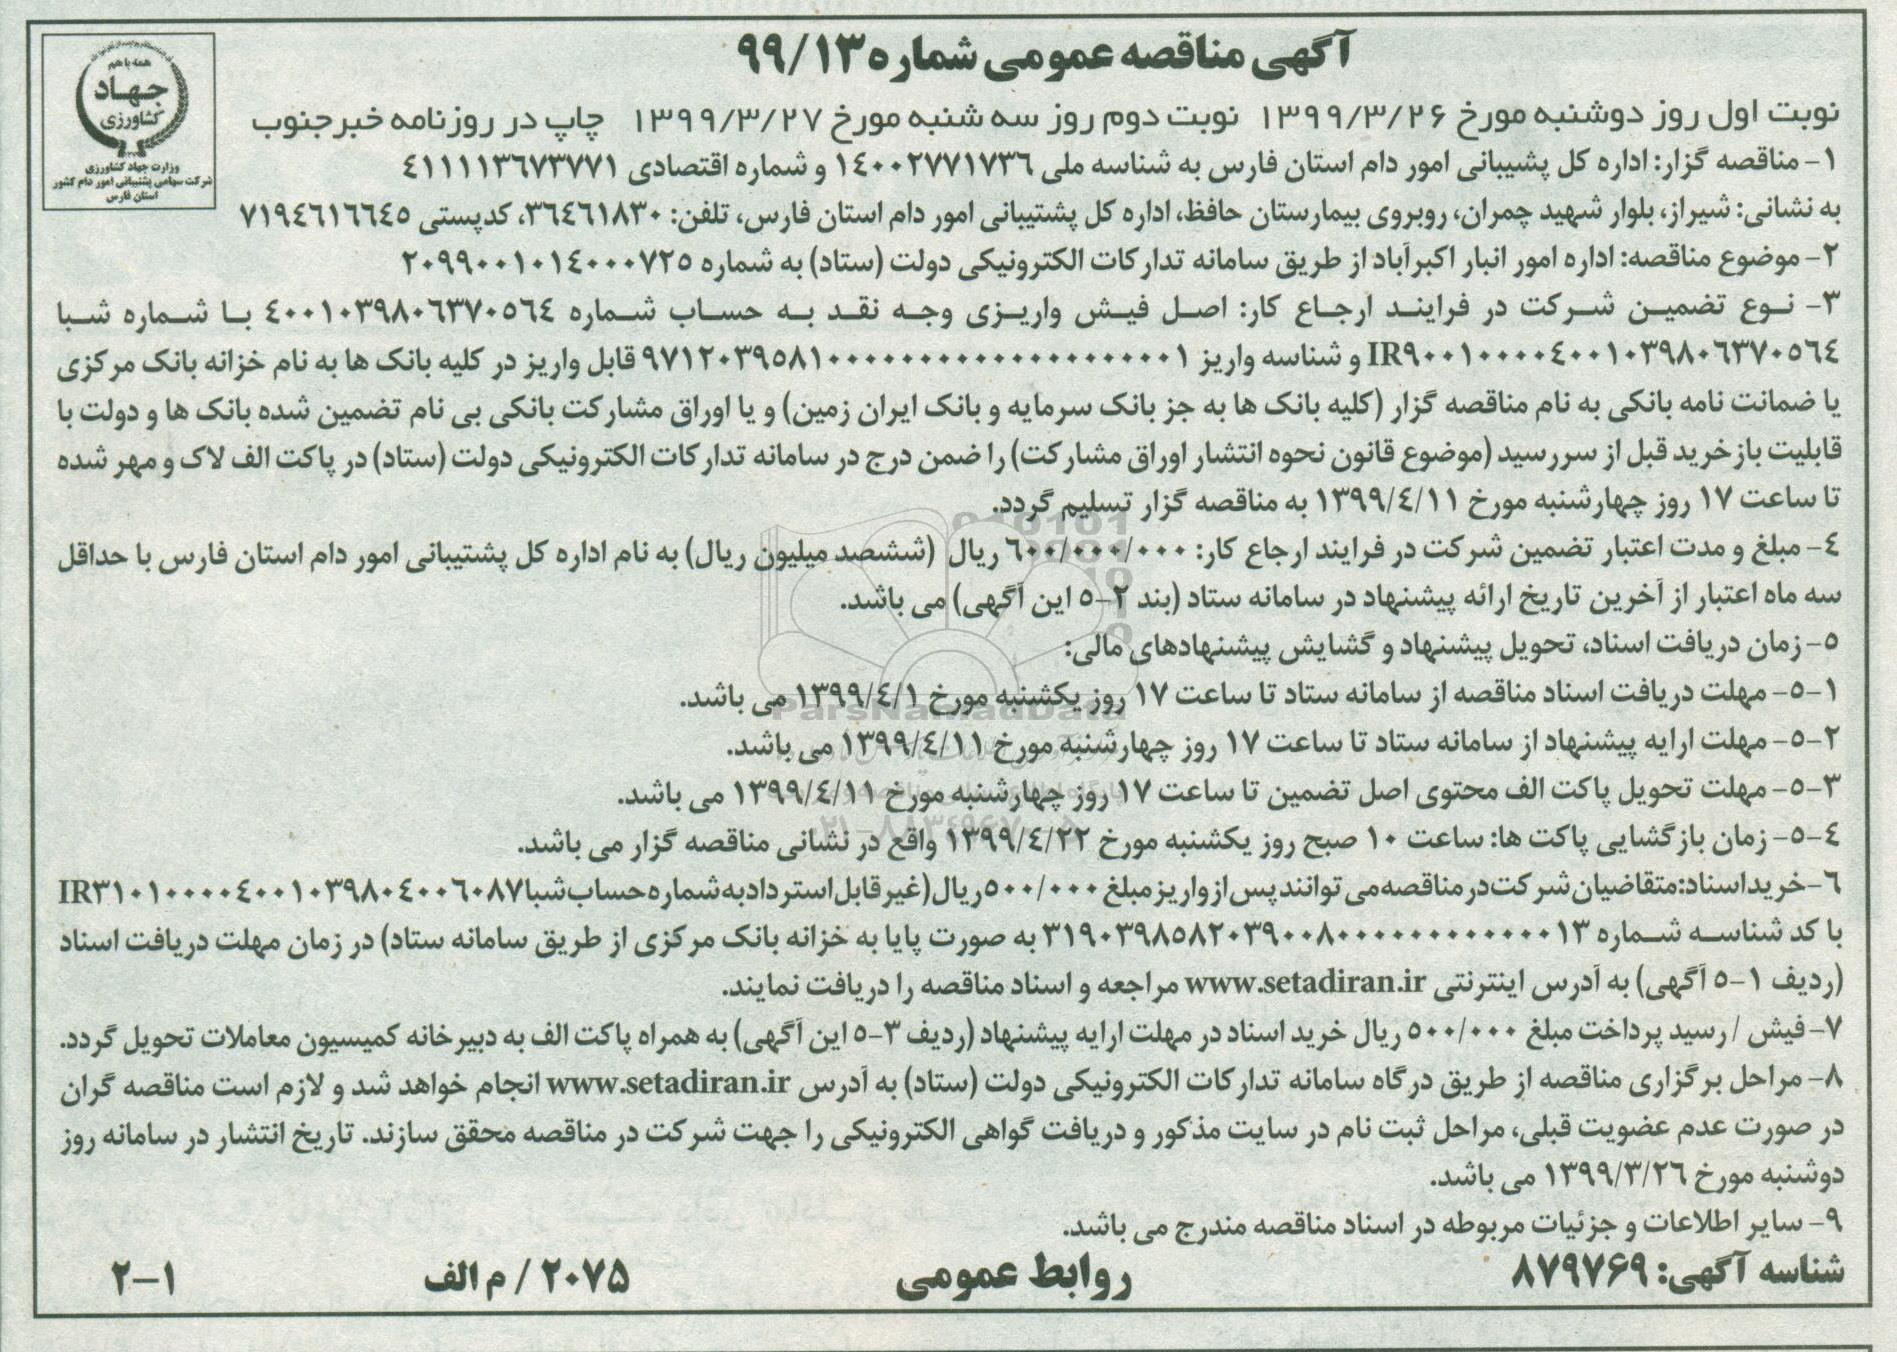 آگهی مناقصه عمومی شماره ۹۹/۱۳
همه با هم
جهاد
کشاورزی
وزارت جهاد کشاورزی
شرکت سهامی پشتیبانی امور دام کشور
استان فارس
نوبت اول روز دوشنبه مورخ ۱۳۹۹/۳/۲۶ نوبت دوم روز سه شنبه مورخ ۱۳۹۹/۳/۲۷ چاپ در روزنامه خبرجنوب
۱- مناقصه گزار: اداره کل پشیبانی امور دام استان فارس به شناسه ملی ۱۴۰۰۲۷۷۱۷۳۶ و شماره اقتصادی ۴۱۱۱۱۳۶۷۳۷۷۱
به نشانی: شیراز، بلوار شهید چمران، روبروی بیمارستان حافظ، اداره کل پشتیبانی امور دام استان فارس، تلفن: ۳۶۴۶۱۸۳۰، کدپستی ۷۱۹۴۶۱۶۶۴۵
۲- موضوع مناقصه: اداره امور انبار اکبرآباد از طریق سامانه تدارکات الکترونیکی دولت (ستاد) به شماره ۲۰۹۹۰۰۱۰۱۴۰۰۰۷۲۵
۳- نوع تضمین شرکت در فرایند ارجاع کار: اصل فیش واریزی وجه نقد به حساب شماره ۴۰۰۱۰۳۹۸۰۶۳۷۰۵۶۴ با شماره شبا
IR۹۰۰۱۰۰۰۰۴۰۰۱۰۳۹۸۰۶۳۷۰۵۶۴ و شناسه واریز قابل واریز در کلیه بانک ها به نام خزانه بانک مرکزی
یا ضمانت نامه بانکی به نام مناقصه گزار (کلیه بانک ها به جز بانک سرمایه و بانک ایران زمین) و یا اوراق مشارکت بانکی بی نام تضمین شده بانک ها و دولت با
قابلیت بازخرید قبل از سررسید (موضوع قانون نحوه انتشار اوراق مشارکت) را ضمن درج در سامانه تدارکات الکترونیکی دولت (ستاد) در پاکت الف لاک و مهر شده
تا ساعت ۱۷ روز چهارشنبه مورخ ۱۳۹۹/۴/۱۱ به مناقصه گزار تسلیم گردد.
۴- مبلغ و مدت اعتبار تضمین شرکت در فرایند ارجاع کار: ۶۰۰/۰۰۰/۰۰۰ ریال (ششصد میلیون ریال) به نام اداره کل پشتیبانی امور دام استان فارس با حداقل
سه ماه اعتبار از آخرین تاریخ ارائه پیشنهاد در سامانه ستاد (بند ۲-۵ این آگهی) می باشد.
۵- زمان دریافت اسناد، تحویل پیشنهاد و گشایش پیشنهادهای مالی:
۵-۱- مهلت دریافت اسناد مناقصه از سامانه ستاد تا ساعت ۱۷ روز یکشنبه مورخ ۱۳۹۹/۴/۱ می باشد.
ParsNamadData
۵-۲- مهلت ارایه پیشنهاد از سامانه ستاد تا ساعت ۱۷ روز چهارشنبه مورخ ۱۳۹۹/۴/۱۱ می باشد.
۵-۳- مهلت تحویل پاکت الف محتوی اصل تضمین تا ساعت ۱۷ روز چهارشنبه مورخ ۱۳۹۹/۴/۱۱ می باشد.
۵-۴- زمان بازگشایی پاکت ها: ساعت ۱۰ صبح روز یکشنبه مورخ ۱۳۹۹/۴/۲۲ واقع در نشانی مناقصه گزار می باشد.
۶-خرید اسناد: متقاضیان شرکت در مناقصه می توانند پس از واریز مبلغ ۵۰۰/۰۰۰ ریال (غیر قابل استرداد به شماره حساب شبا IR۳۱۰۱۰۰۰۰۴۰۰۱۰۳۹۸۰۴۰۰۶۰۸۷
با کد شناسه شماره به صورت پایا به خزانه بانک مرکزی از طریق سامانه ستاد) در زمان مهلت دریافت اسناد
(ردیف ۱-۵ آگهی) به آدرس اینترنتی www.setadiran.ir مراجعه و اسناد مناقصه را دریافت نمایند.
۷- فیش / رسید پرداخت مبلغ ۵۰۰/۰۰۰ ریال خرید اسناد در مهلت ارایه پیشنهاد (ردیف ۳-۵ این آگهی) به همراه پاکت الف به دبیرخانه کمیسیون معاملات تحویل گردد.
۸- مراحل برگزاری مناقصه از طریق درگاه سامانه تدارکات الکترونیکی دولت (ستاد) به آدرس www.setadiran.ir انجام خواهد شد و لازم است مناقصه گران
در صورت عدم عضویت قبلی، مراحل ثبت نام در سایت مذکور و دریافت گواهی الکترونیکی را جهت شرکت در مناقصه محقق سازند. تاریخ انتشار در سامانه روز
دوشنبه مورخ ۱۳۹۹/۳/۲۶ می باشد.
۹- سایر اطلاعات و جزئیات مربوطه در اسناد مناقصه مندرج می باشد.
شناسه آگهی: ۸۷۹۷۶۹ روابط عمومی ۲۰۷۵ / م الف ۲-۱